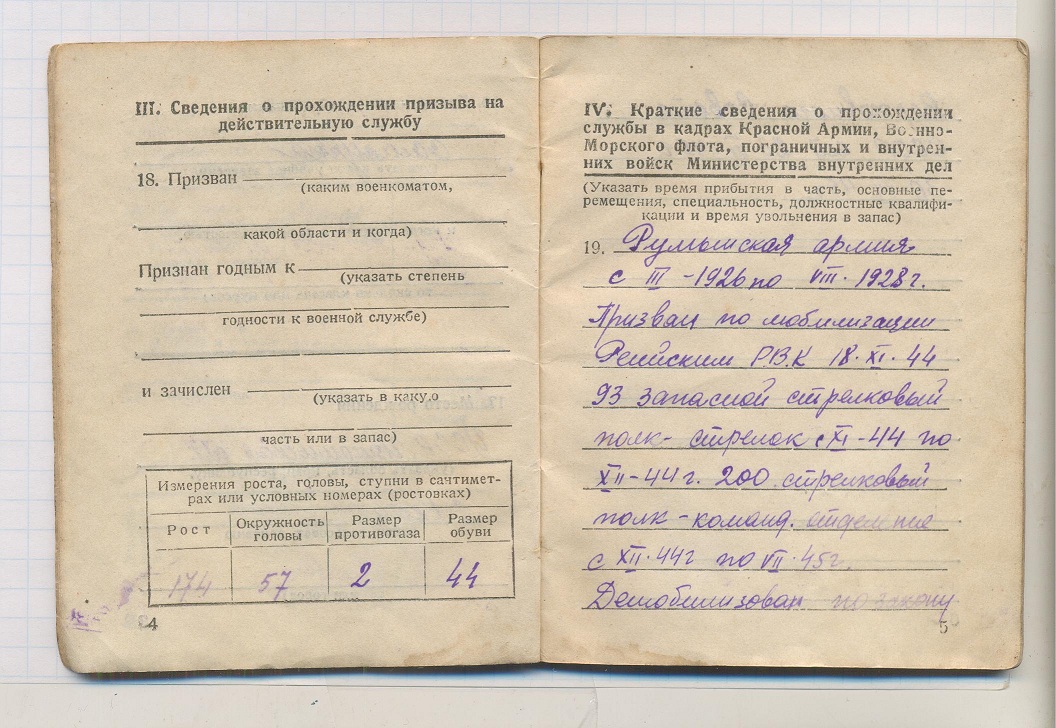 III. Сведения о прохождении призыва на
действительную службу
18. Призван
(каким военкоматом,
какой области и когда)
Признан годным к
(указать степень
годности к военной службе)
и зачислен
(указать в какую
часть или в запас)
Измерения роста, головы, ступни в сантимет-
рах или условных номерах (ростовках)
Рост
Окружность
головы
Размер
противогаза
Размер
обуви
174
57
2
44
4
IV. Краткие сведения о прохождении
службы в кадрах Красной Армии, Военно-
Морского флота, пограничных и внутрен-
них войск Министерства внутренних дел
(Указать время прибытия в часть, основные пе-
ремещения, специальность, должностные квалифи-
кации и время увольнения в запас)
19. Румынская армия
с III - 1926 по VIII. 1928 г.
Призван по мобилизации
Ренийским Р.В.К 18. XI. 44
93 запасной стрелковый
полк - стрелок с XI - 44 по
XII - 44 г. 200 стрелковый
полк - команд. отделения
с XII. 44 г по VII. 45 г.
Демобилизован по закону
5